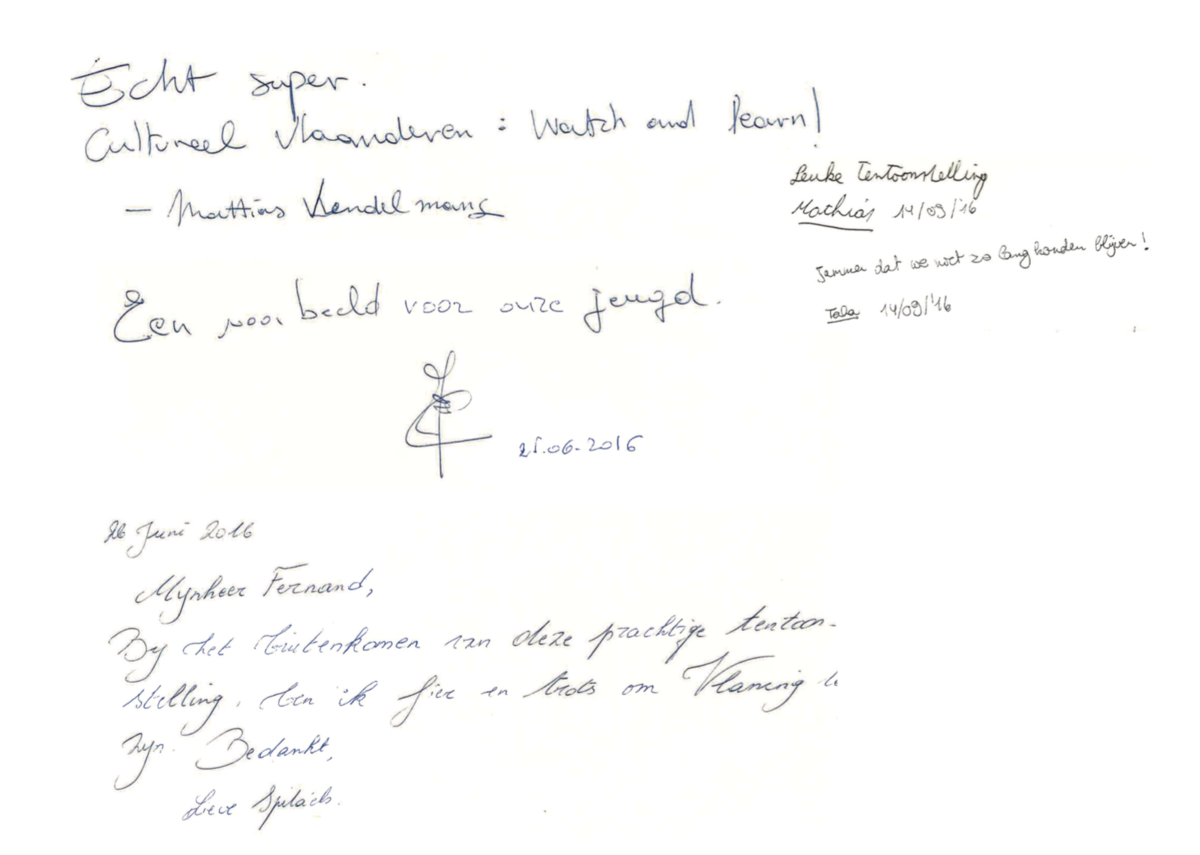 Echt super.
Cultureel Vlaanderen : Watch and learn!
— Mattias Vendelmans
Een voorbeeld voor onze jeugd.
25.06.2016
Leuke Tentoonstelling
Mathias 14/09/'16
Jammer dat we niet zo lang konden blijven!
Tala 14/09/'16
26 Juni 2016
Mynheer Fernand,
By het buitenkomen van deze prachtige tentoon-
stelling, ben ik fier en trots om Vlaming te
zyn. Bedankt,
Lieve